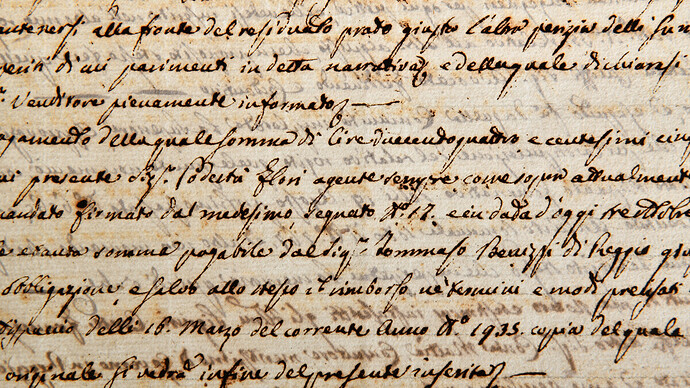 antenersi alla fronte del residuato prato giusto l'altra perizia delli Sun
periti di cui parimenti in detta narrativa, e della quale dichiarasi
Venditore pienamente informato
agamento della quale somma di Lire duecendoquattro e centesimi cinq
presente Sig.r Podestà Flori agente sempre come sopra attualmente
mandato firmato dal medesimo segnato N.o 17. e in data d'oggi tre
esatta somma pagabile dal Sig.r Tommaso di Reggio giu
obbligazione, e salvo allo stesso il rimborso ne termini e modi precisati
Dispaccio delli 16. Marzo del corrente Anno N.o 1935. copia del quale
originale si vedrà in fine del presente inserita